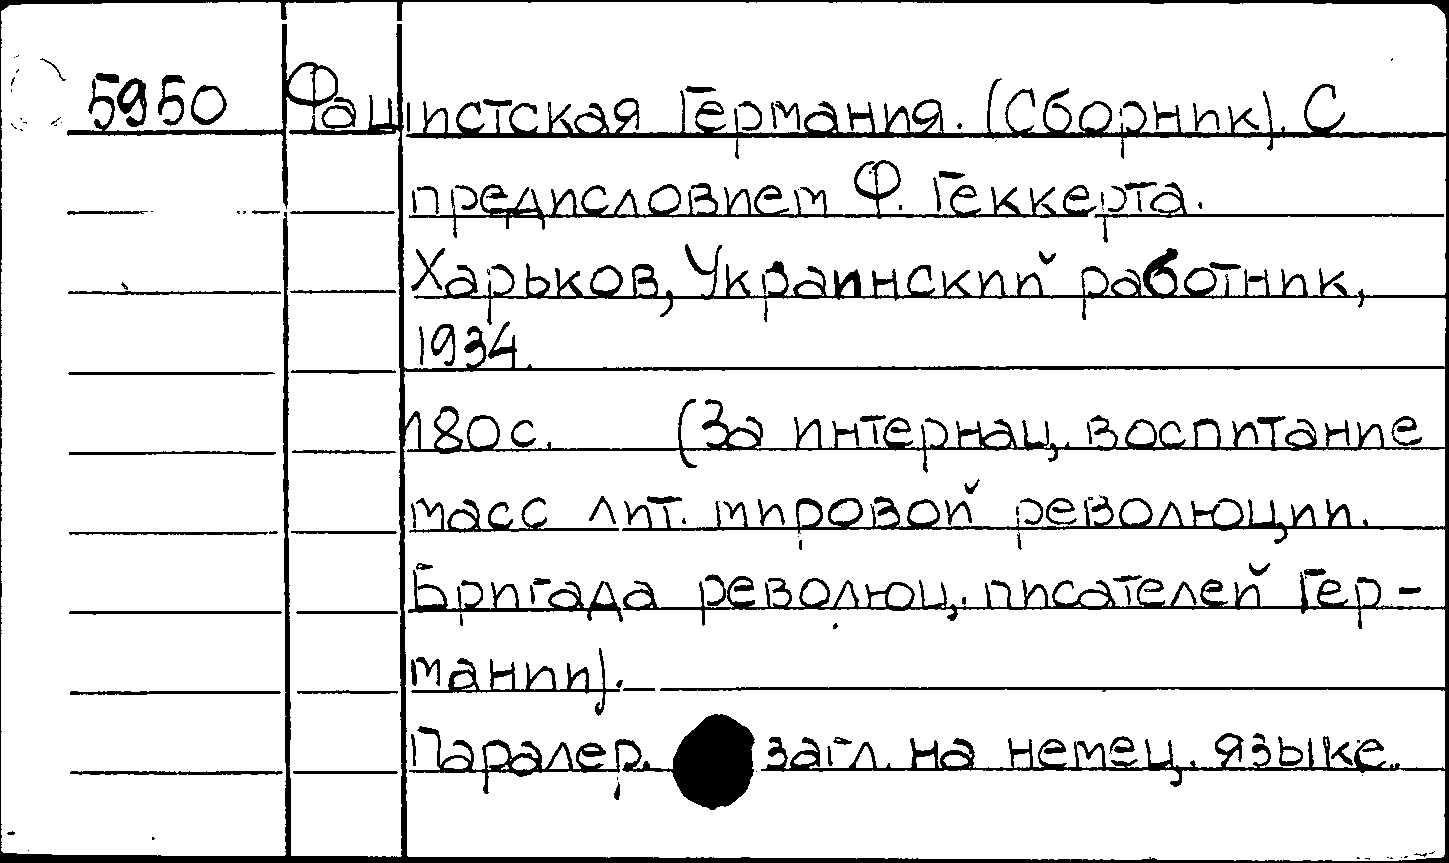 5950 Фашистская Германия. (Сборник). С
предисловием Ф. Геккерта.
Харьков, Украинский работник,
1934.
180 с. (За интернац. воспитание
масс лит. мировой революции.
Бригада революц. писателей Гер-
мании).
Паралер. загл. на немец. языке.